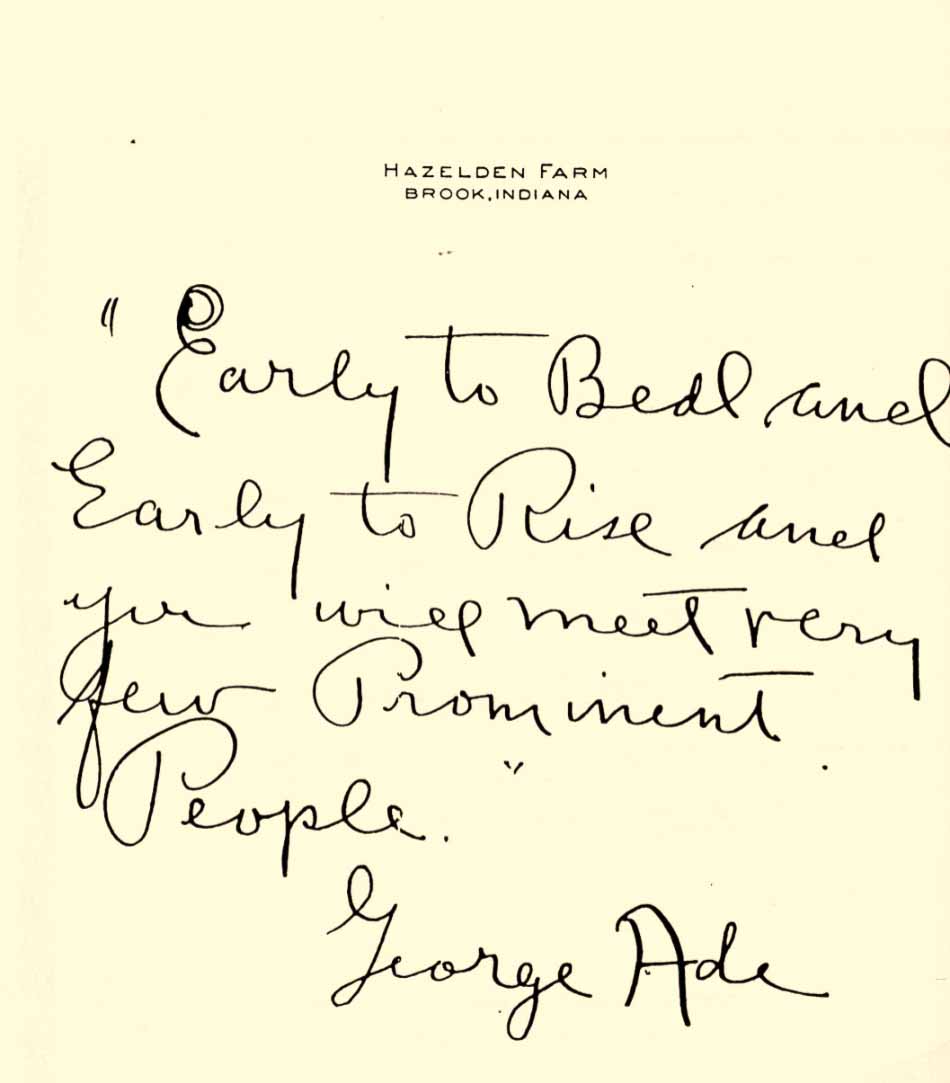 HAZELDEN FARM
BROOK, INDIANA
" Early to Bed and
Early to Rise and
you will meet very
few Prominent
People. "
George Ade